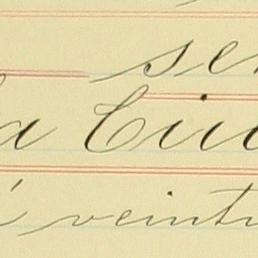 se
la Ciu
é veinti